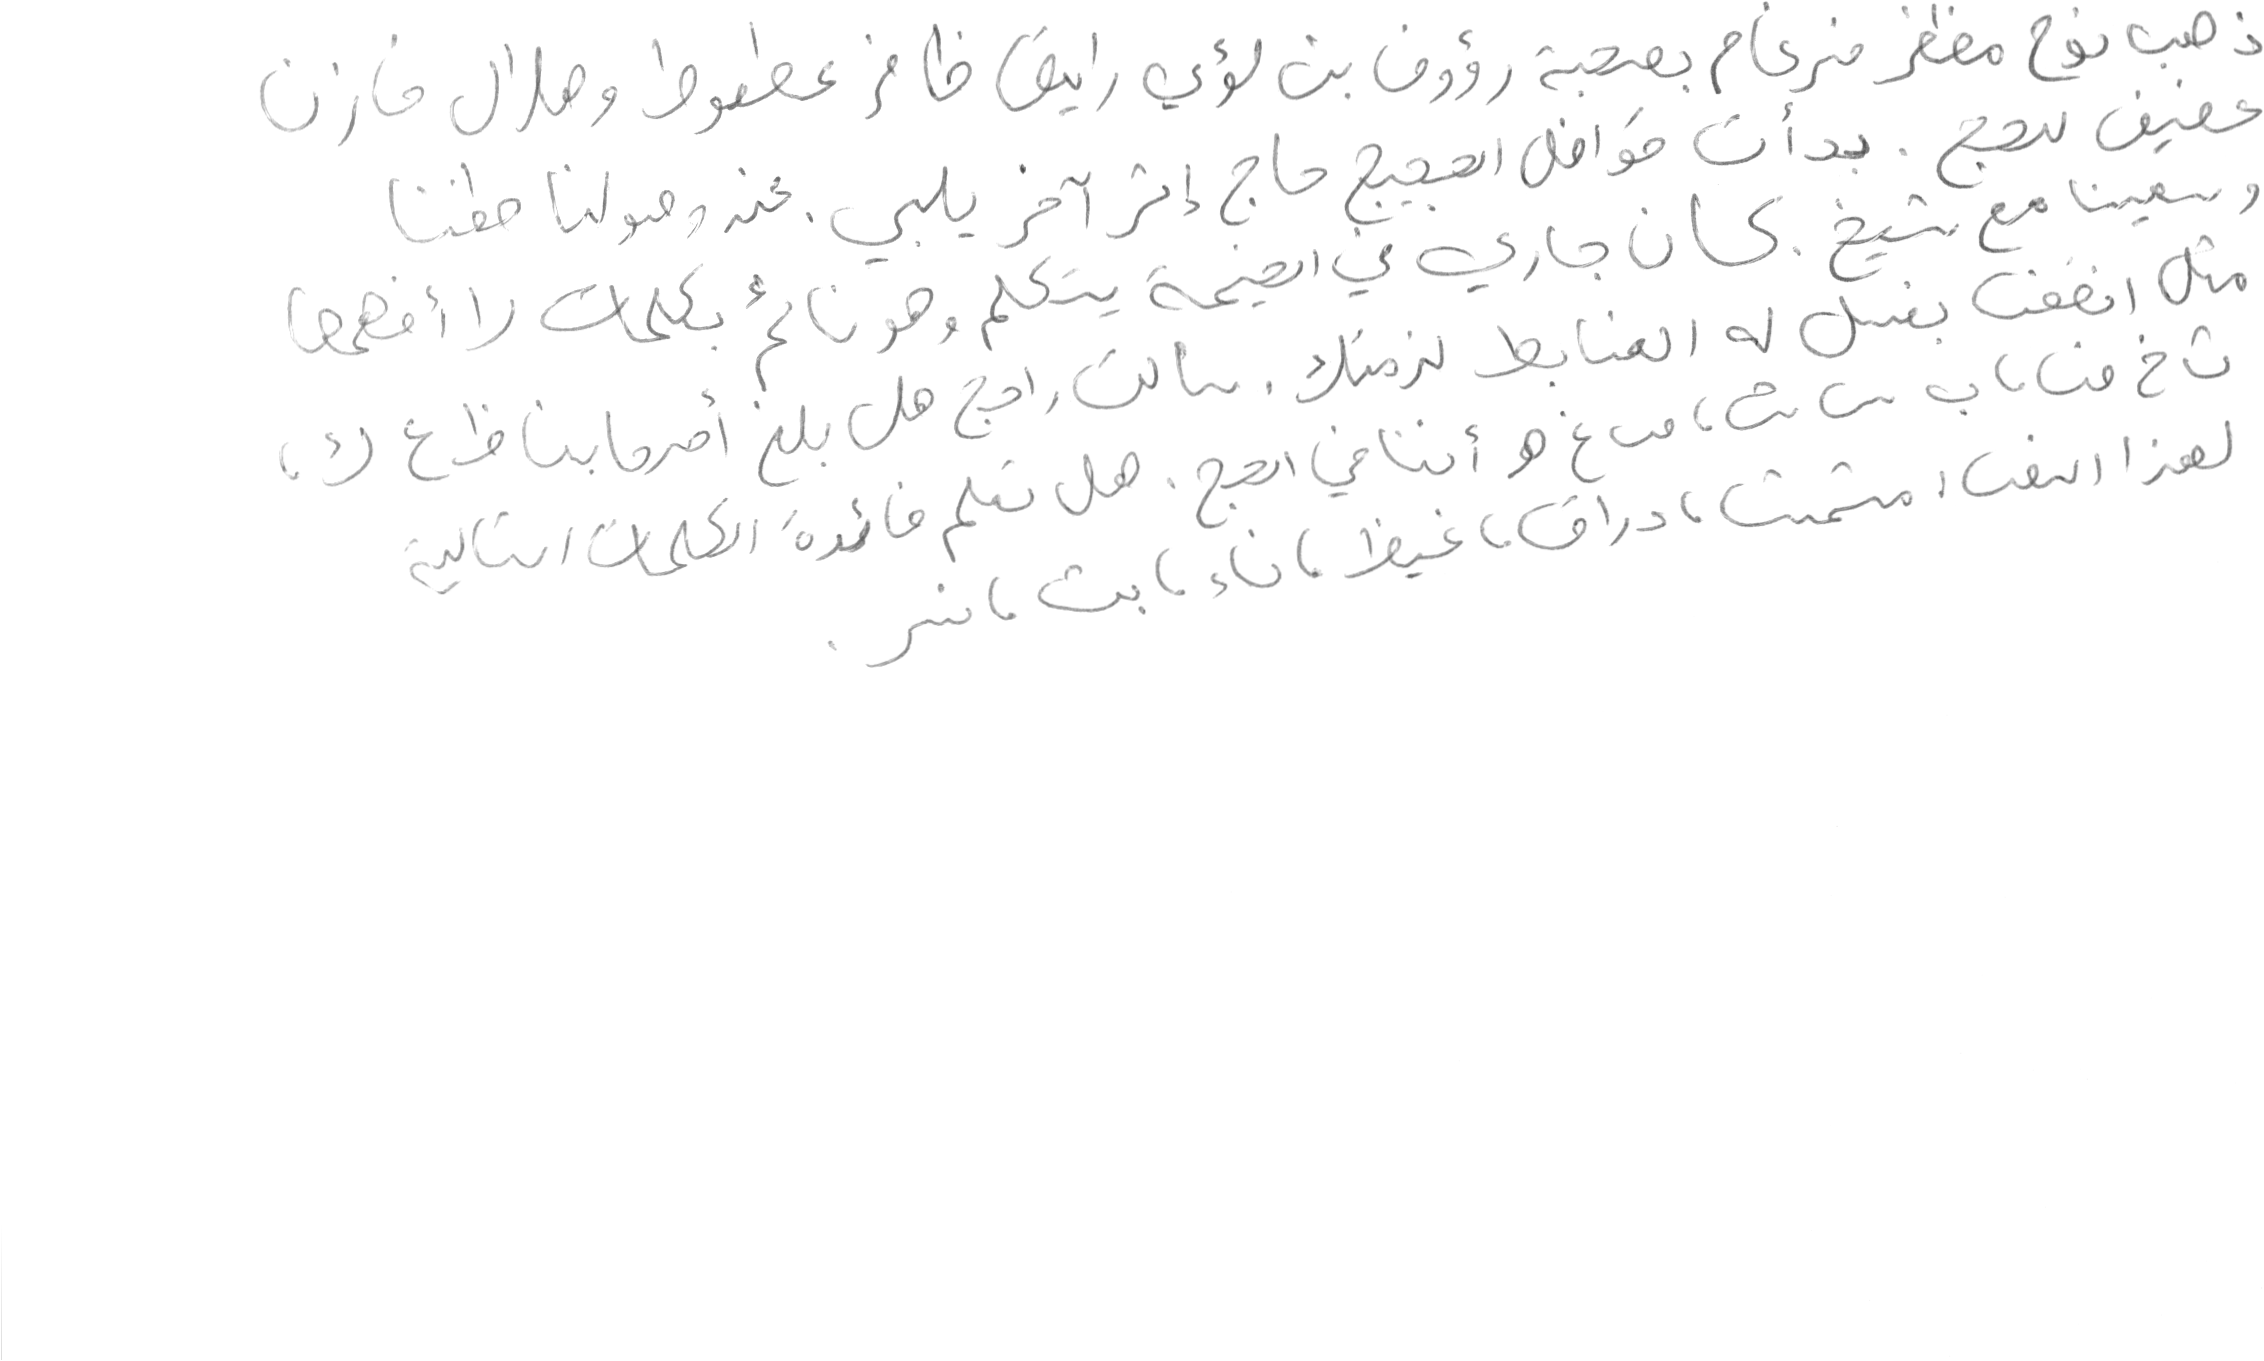 ذهب نوح مظفر ضرغام بصحبة رؤوف بن لؤي رايق ظافر عطعوط وهلال خازن
عفيف للحج . بدأت قوافل الحجيج حاج إثر آخر يلبي . عند وصولنا طفنا
وسعينا مع شيخ . كان جاري في الخيمة يتكلم وهو نائم بكلمات لا أفهمها
مثل انفقت بغسل له الضابط لزمتك . سألت راجح هل بلغ أصحابنا ظ غ ك ،
ث خ ض ، ب س ش ، ص غ هو أننا في الحج . هل تعلم فائدة الكلمات التالية
لهذا البعث ، مشمش ، دراق ، غيظ ، ناء ، بث ، نسر .